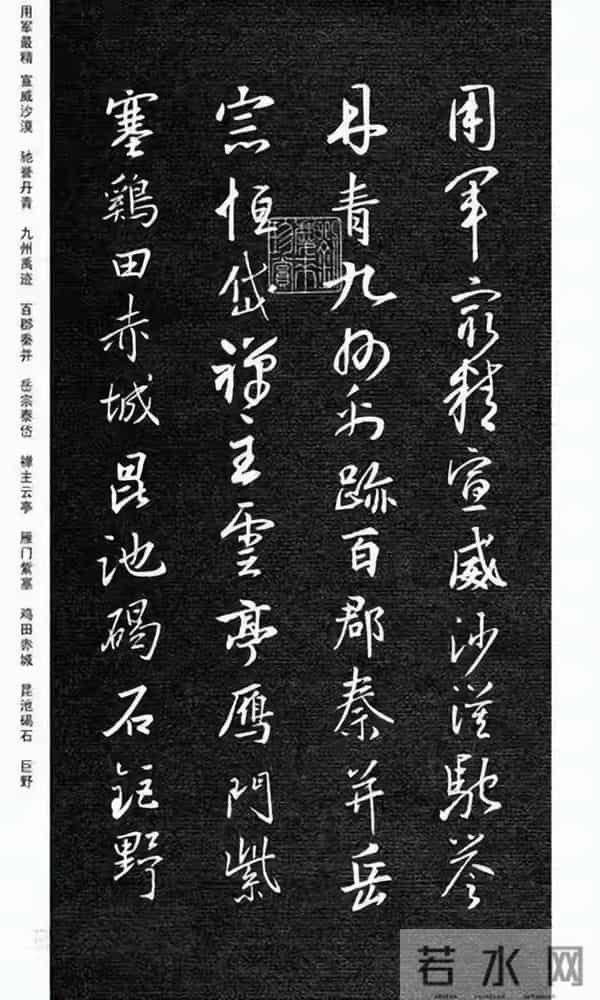 用軍最精宣威沙漠馳譽
丹青九州禹跡百郡秦并岳
宗恒岱禪主雲亭雁門紫
塞鷄田赤城昆池碣石鉅野
用军最精 宣威沙漠 驰誉丹青 九州禹迹 百郡秦并 岳宗泰岱 禅主云亭 雁门紫塞 鸡田赤城 昆池碣石 巨野
若水网